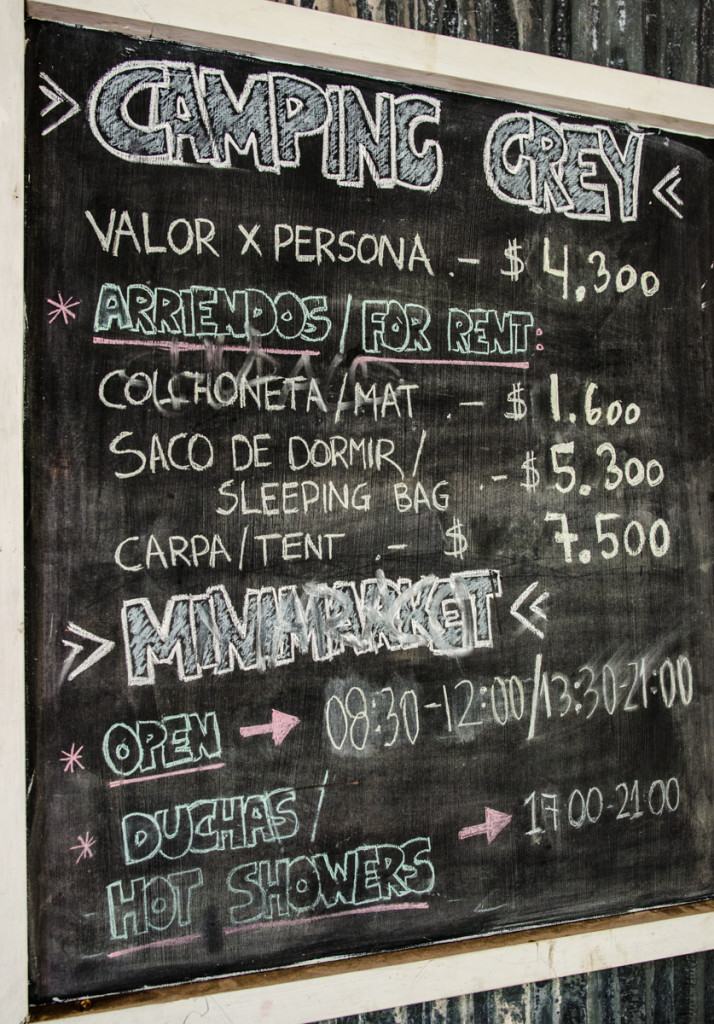 >> CAMPING GREY <<
VALOR X PERSONA .- $ 4.300
* ARRIENDOS / FOR RENT:
COLCHONETA / MAT .- $ 1.600
SACO DE DORMIR /
SLEEPING BAG .- $ 5.300
CARPA / TENT .- $ 7.500
>> MINIMARKET <<
* OPEN → 08:30-12:00/13:30-21:00
* DUCHAS / → 17 00-21 00
HOT SHOWERS